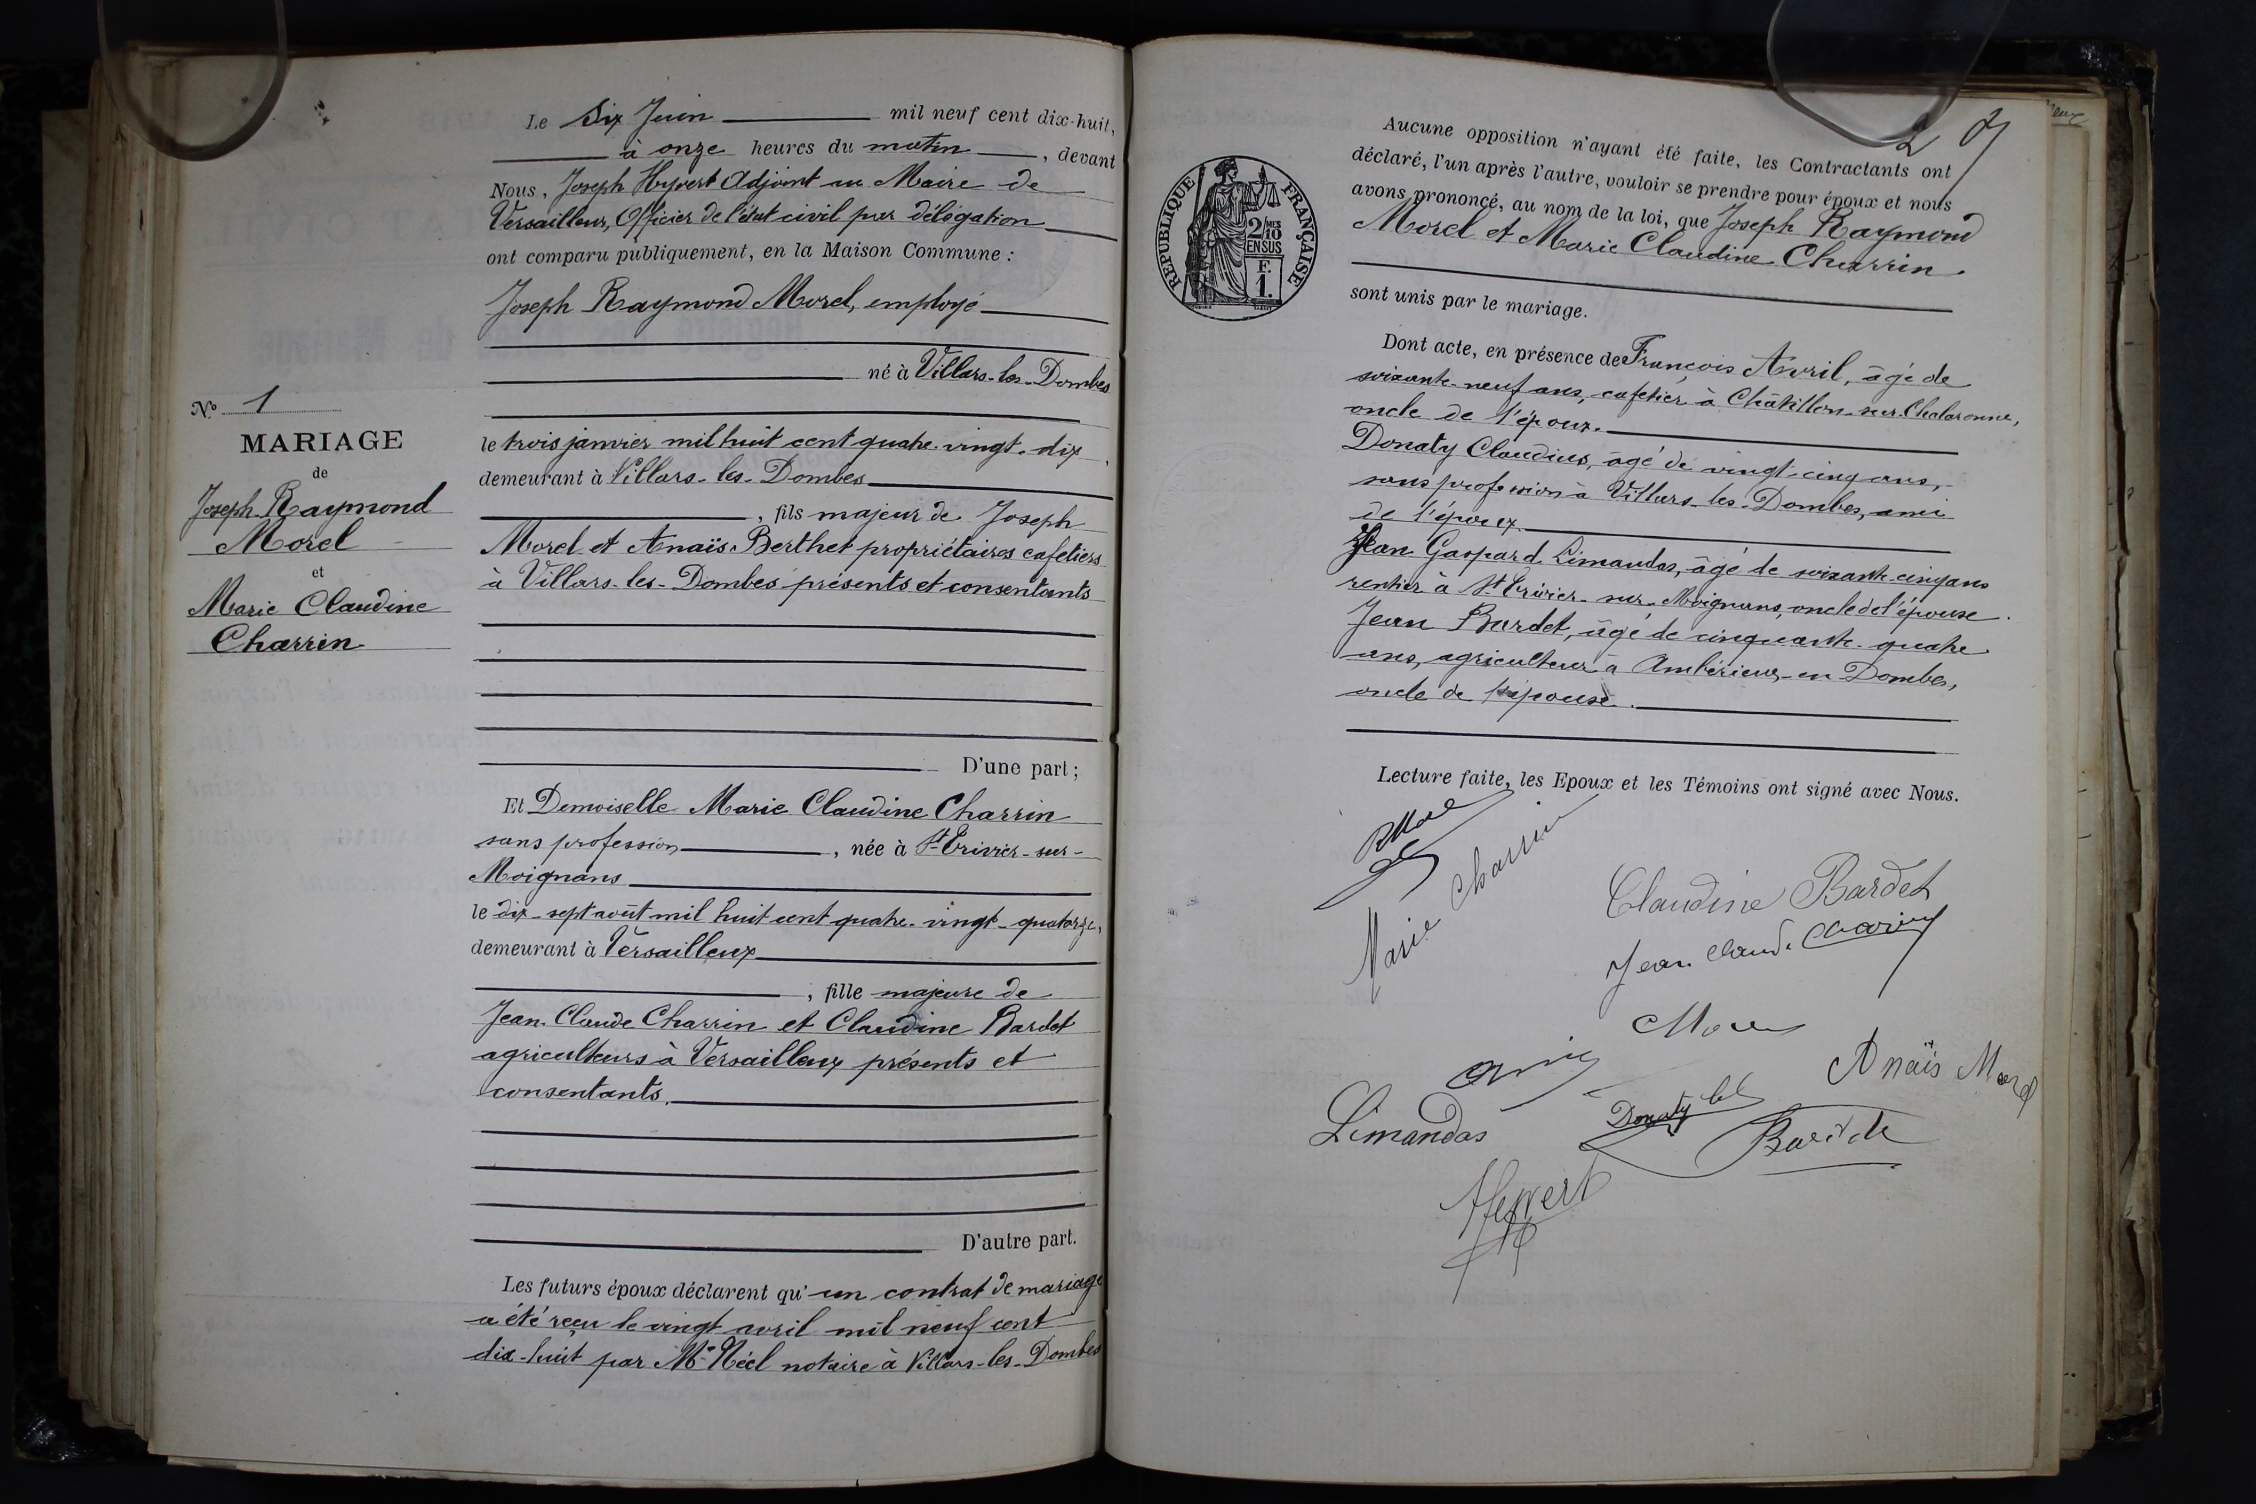 Le Six Juin mil neuf cent dix-huit,
à onze heures du matin, devant
Nous, Joseph Hyvert Adjoint au Maire de
Versailleux, Officier de l'état civil par délégation
ont comparu publiquement, en la Maison Commune :
Joseph Raymond Morel, employé
né à Villars-les-Dombes
le trois janvier mil huit cent quatre-vingt-dix,
demeurant à Villars-les-Dombes
, fils majeur de Joseph
Morel et Anaïs Berthet propriétaires cafetiers
à Villars-les-Dombes présents et consentants
D'une part ;
Nº 1
MARIAGE
de
Joseph Raymond
Morel
et
Marie Claudine
Charrin
Et Demoiselle Marie Claudine Charrin
sans profession, née à St Trivier-sur-
Moignans
le dix-sept août mil huit cent quatre-vingt-quatorze,
demeurant à Versailleux
, fille majeure de
Jean Claude Charrin et Claudine Bardet
agriculteurs à Versailleux présents et
consentants.
D'autre part.
Les futurs époux déclarent qu'un contrat de mariage
a été reçu le vingt avril mil neuf cent
dix-huit par Me Réel notaire à Villars-les-Dombes
2
RÉPUBLIQUE FRANÇAISE
2/10 MES
EN SUS
F.
1.
Aucune opposition n'ayant été faite, les Contractants ont
déclaré, l'un après l'autre, vouloir se prendre pour époux et nous
avons prononcé, au nom de la loi, que Joseph Raymond
Morel et Marie Claudine Charrin
sont unis par le mariage.
Dont acte, en présence de François Avril, âgé de
soixante-neuf ans, cafetier à Châtillon-sur-Chalaronne,
oncle de l'époux.
Donaty Claudius, âgé de vingt-cinq ans,
sans profession à Villars-les-Dombes, ami
de l'époux.
Jean Gaspard Limandas, âgé de soixante-cinq ans
rentier à St Trivier-sur-Moignans, oncle de l'épouse.
Jean Bardet, âgé de cinquante-quatre
ans, agriculteur à Ambérieux-en-Dombes,
oncle de l'épouse.
Lecture faite, les Epoux et les Témoins ont signé avec Nous.
RMorel
Marie Charrin
Claudine Bardet
Jean Claude Charrin
Morel
Avril
Anaïs Morel
Limandas
Donaty Cl
Bardet
Hyvert